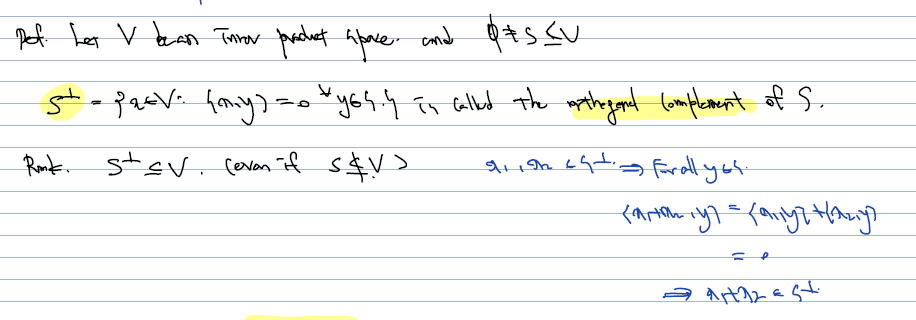 Def. Let V be an inner product space. and ∅ ≠ S ⊆ V
S^⊥ = {x ∈ V : <x, y> = 0 ∀ y ∈ S.} is called the orthogonal complement of S.
Rmk. S^⊥ ≤ V. (even if S ≰ V)
x₁, x₂ ∈ S^⊥. ⇒ For all y ∈ S.
<x₁+x₂, y> = <x₁, y> + <x₂, y>
= 0
⇒ x₁+x₂ ∈ S^⊥.